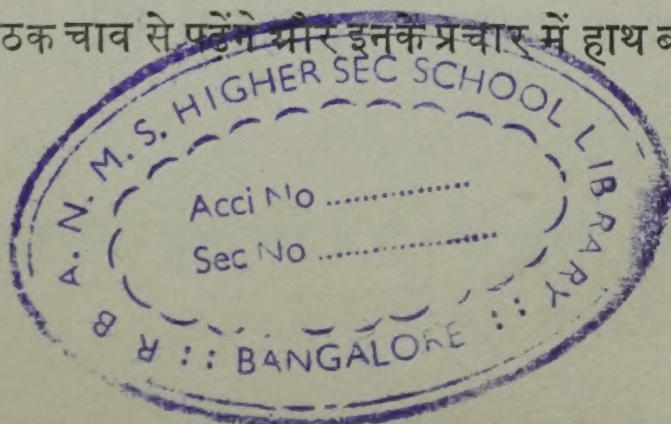 ठक चाव से पढ़ेंगे और इनके प्रचार में हाथ ब
R B A. N. M. S. HIGHER SEC SCHOOL LIBRARY :: BANGALORE ::
Acci No ..................
Sec No ......................